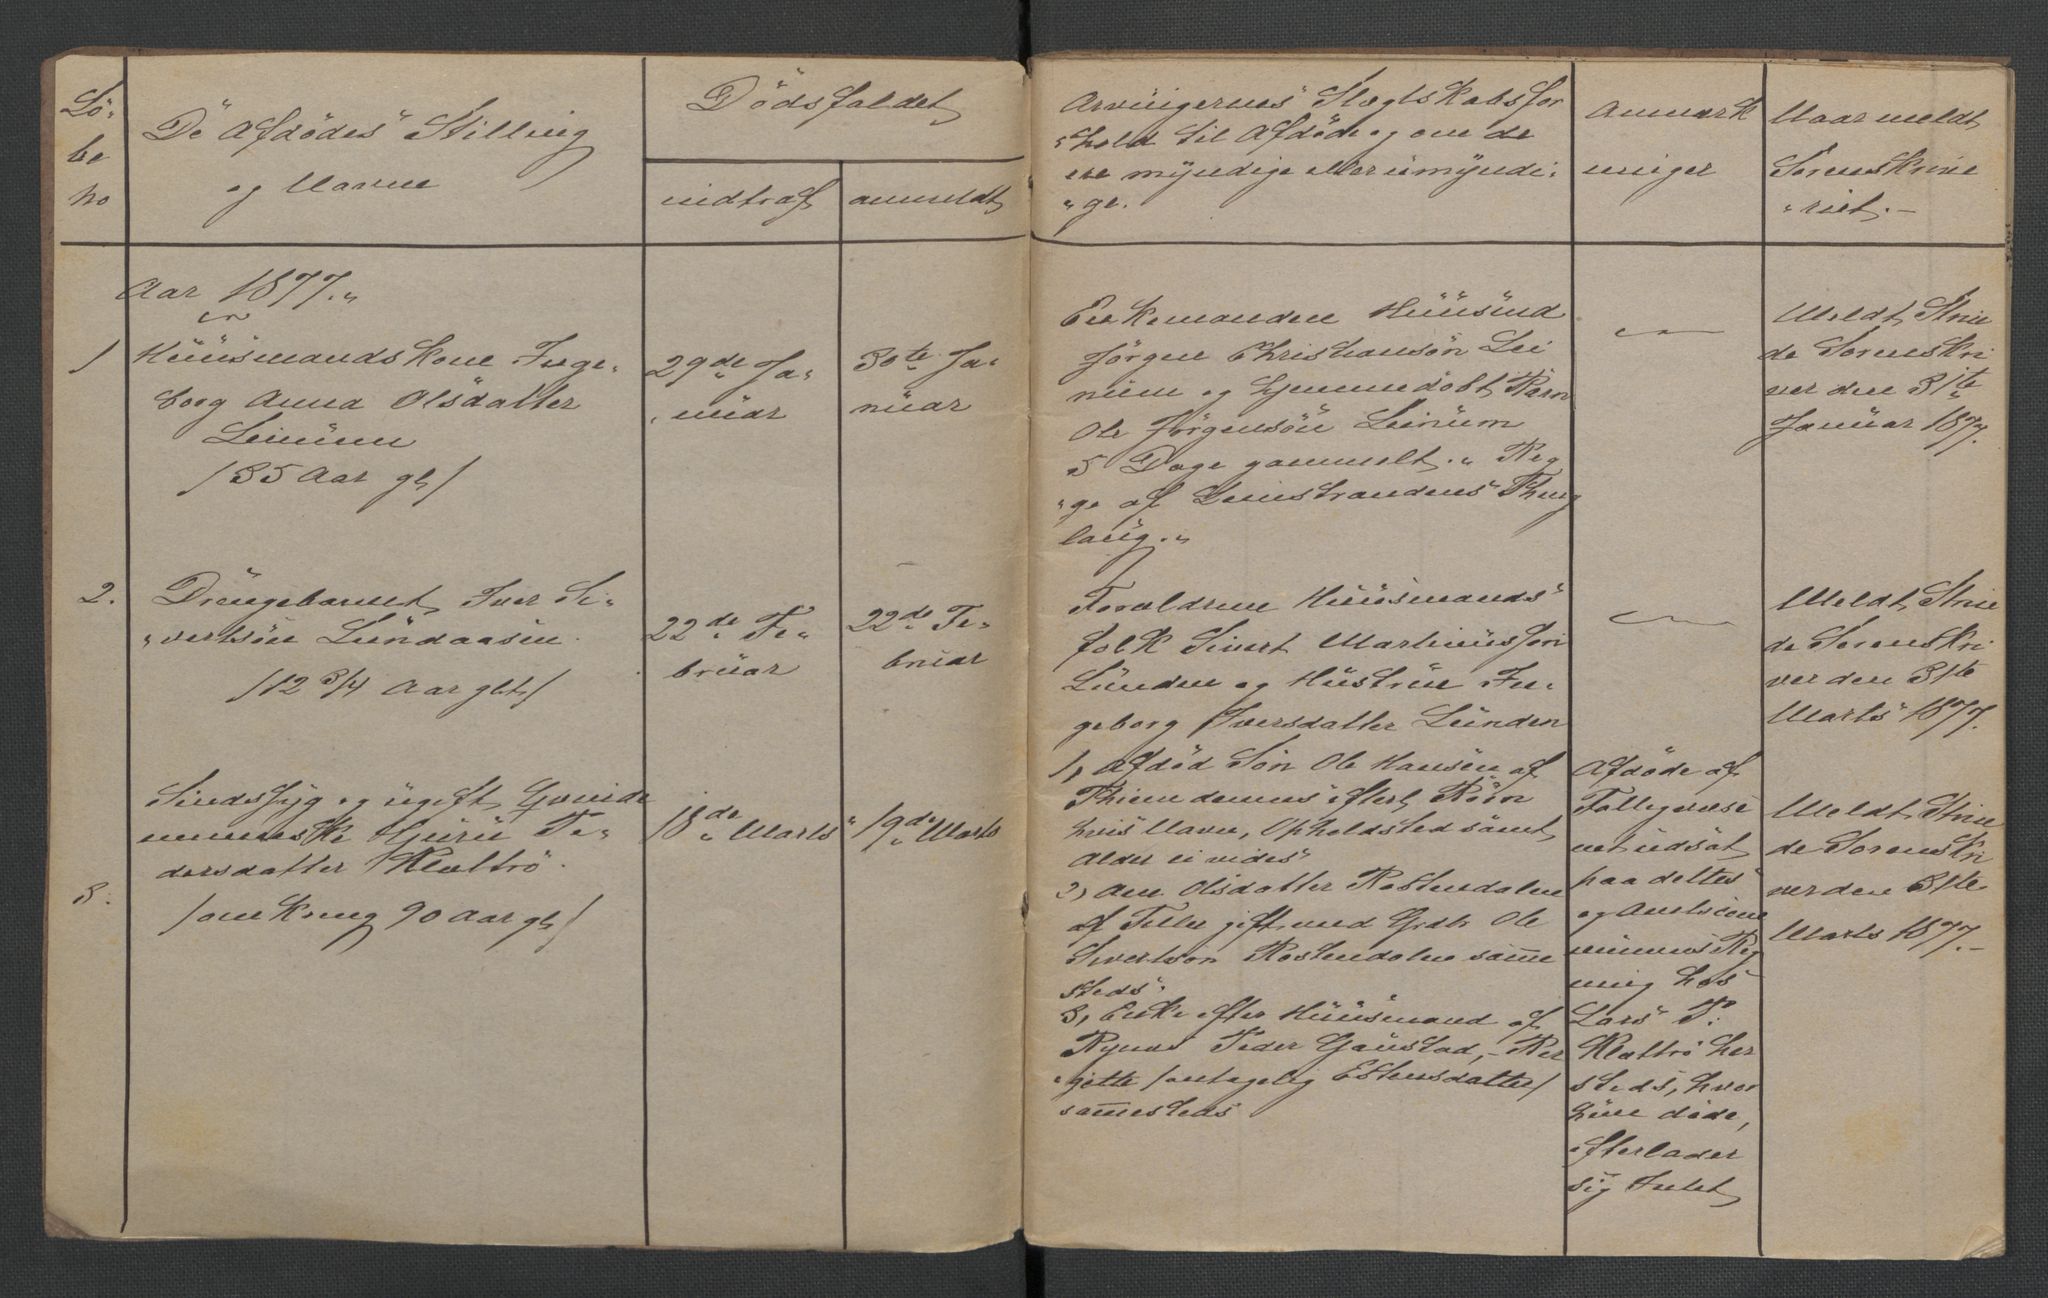 Lö-
be
No
De Afdödes Stilling
og Navne
Dödsfaldet
indtraf
anmeldt
Arvingernes Slægtskabsfor
"hold til Afdöde og om de
ere myndige eller umyndi-
"ge.
Anmærk
ninger
Naar meldt
Sorenskrive
"riet.-
Aar 1877.
1
Huusmandskone Inge-
borg Anna Olsdatter
Leinum
/35 Aar gl/
29de Ja-
nuar
30te Ja-
nuar
Enkemanden Huusmd
Jörgen Christiansön Lei
num og hjemmedöbt Barn
Ole Jörgensön Leinum
5 Dage gammelt. Beg
"ge af Leinstrandens Thing
laug.
Meldt Strin
de Sorenskri
ver den 31te
Januar 1877.
2.
Drengebarnet Iver Si-
"vertsön Lundaasen
/12 3/4 Aar glt/
22de Fe-
bruar
22de Fe-
bruar
Forældrene Huusmands
folk Sivert Martinussön
Lunden og Hustrue In-
geborg Iversdatter Lunden
Meldt Strin
de Sorenskri
ver den 31te
Marts 1877.
3.
Sindssyg og ugift Qvinde
menneske Guru Pe-
dersdatter Klættrö
/omkring 90 Aar gl/
18de Marts
19de Marts
1, Afdöd Sön Ole Hansen af
Throndemnes efterl Börn
hvis Navne, Opholdsted samt
Alder ei vides
2, Ane Olsdatter Rostendalen
af Tiller gift med Grdbr Ole
Sivertsön Rostendalen samme
steds.
3, Enke efter Huusmand af
Bynes Peder Gaustad, - Ber
"gitte /antagelig Estensdatter/
sammesteds
Afdöde af
Fattigvæse
net udsat
paa dettes
og Auctione
rinnes Reg
ning hos
Lars P.
Klættrö her
steds, hvor
hun döde,
efterlader
sig Intet
Meldt Strin
de Sorenskri
ver den 31te
Marts 1877.-